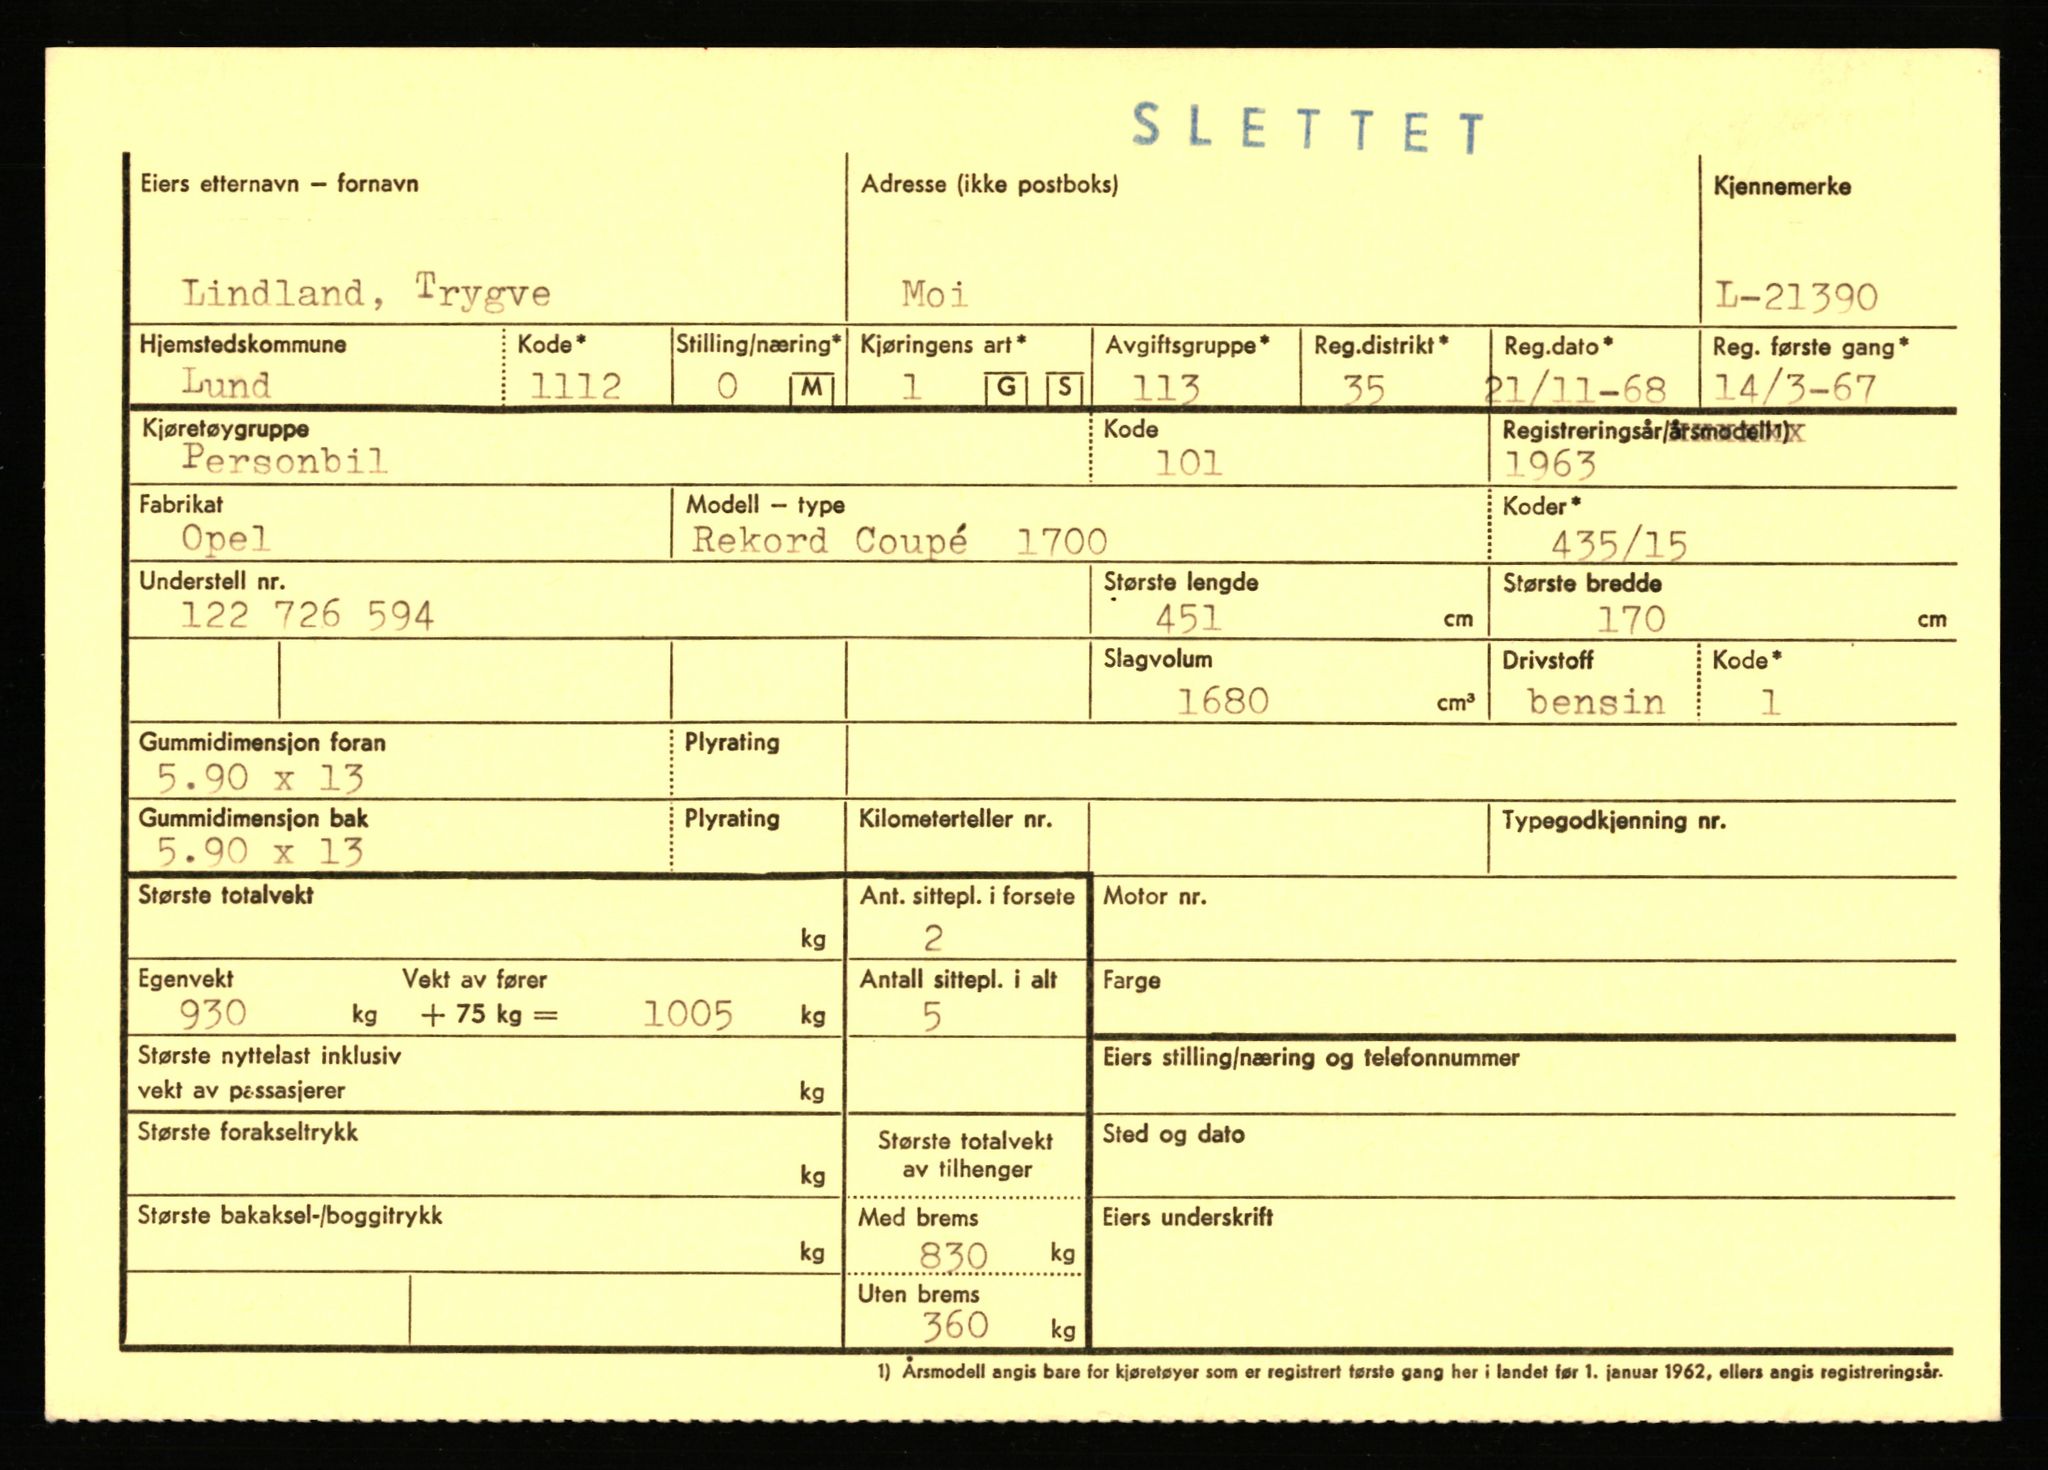 SLETTET
Eiers etternavn – fornavn
Adresse (ikke postboks)
Kjennemerke
Lindland, Trygve
Moi
L-21390
Hjemstedskommune
Kode*
Stilling/næring*
Kjøringens art*
Avgiftsgruppe*
Reg.distrikt*
Reg.dato*
Reg. første gang*
Lund
1112
0 M
1 G S
113
35
21/11-68
14/3-67
Kjøretøygruppe
Kode
Registreringsår/årsmodell1)
Personbil
101
1963
Fabrikat
Modell – type
Koder*
Opel
Rekord Coupé 1700
435/15
Understell nr.
Største lengde
Største bredde
122 726 594
451 cm
170 cm
Slagvolum
Drivstoff
Kode*
1680 cm³
bensin
1
Gummidimensjon foran
Plyrating
5.90 x 13
Gummidimensjon bak
Plyrating
Kilometerteller nr.
Typegodkjenning nr.
5.90 x 13
Største totalvekt
Ant. sittepl. i forsete
Motor nr.
kg
2
Egenvekt
Vekt av fører
Antall sittepl. i alt
Farge
930 kg + 75 kg = 1005 kg
5
Største nyttelast inklusiv
vekt av passasjerer kg
Eiers stilling/næring og telefonnummer
Største forakseltrykk
kg
Største totalvekt
av tilhenger
Sted og dato
Største bakaksel-/boggitrykk
kg
Med brems
830 kg
Eiers underskrift
Uten brems
360 kg
1) Årsmodell angis bare for kjøretøyer som er registrert første gang her i landet før 1. januar 1962, ellers angis registreringsår.